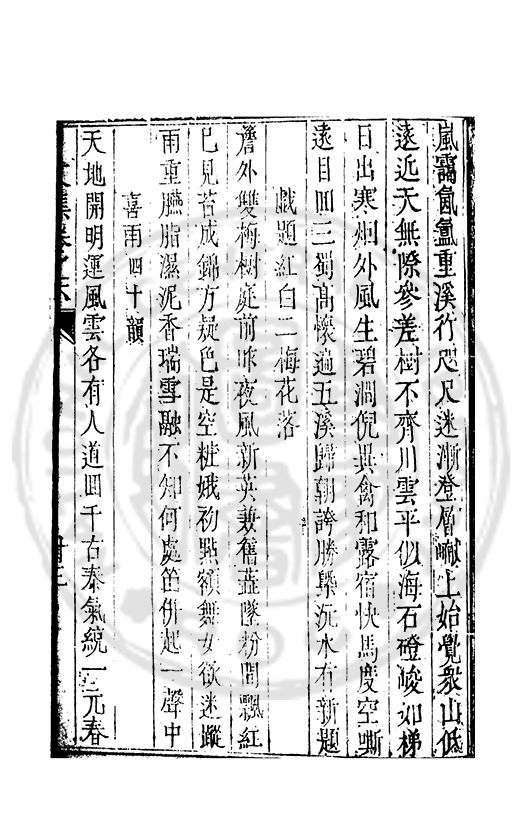 嵐靄氤氳重溪行咫尺迷漸澄層巘上始覺衆山低
遠近天無際參差樹不齊川雲平似海石磴峻如梯
日出寒烟外風生碧澗倪異禽和露宿快馬度空嘶
遠目回三蜀高懷遍五溪歸朝誇勝槩沅水有新題
戲題紅白二梅花落
簷外雙梅樹庭前昨夜風新英兼舊蘂墜粉間飄紅
已見苔成錦方疑色是空粧娥初點額舞女欲迷蹤
雨重臙脂濕泥香瑞雪融不知何處笛併起一聲中
喜雨四十韻
天地開明運風雲各有人道回千古泰氣統一元春